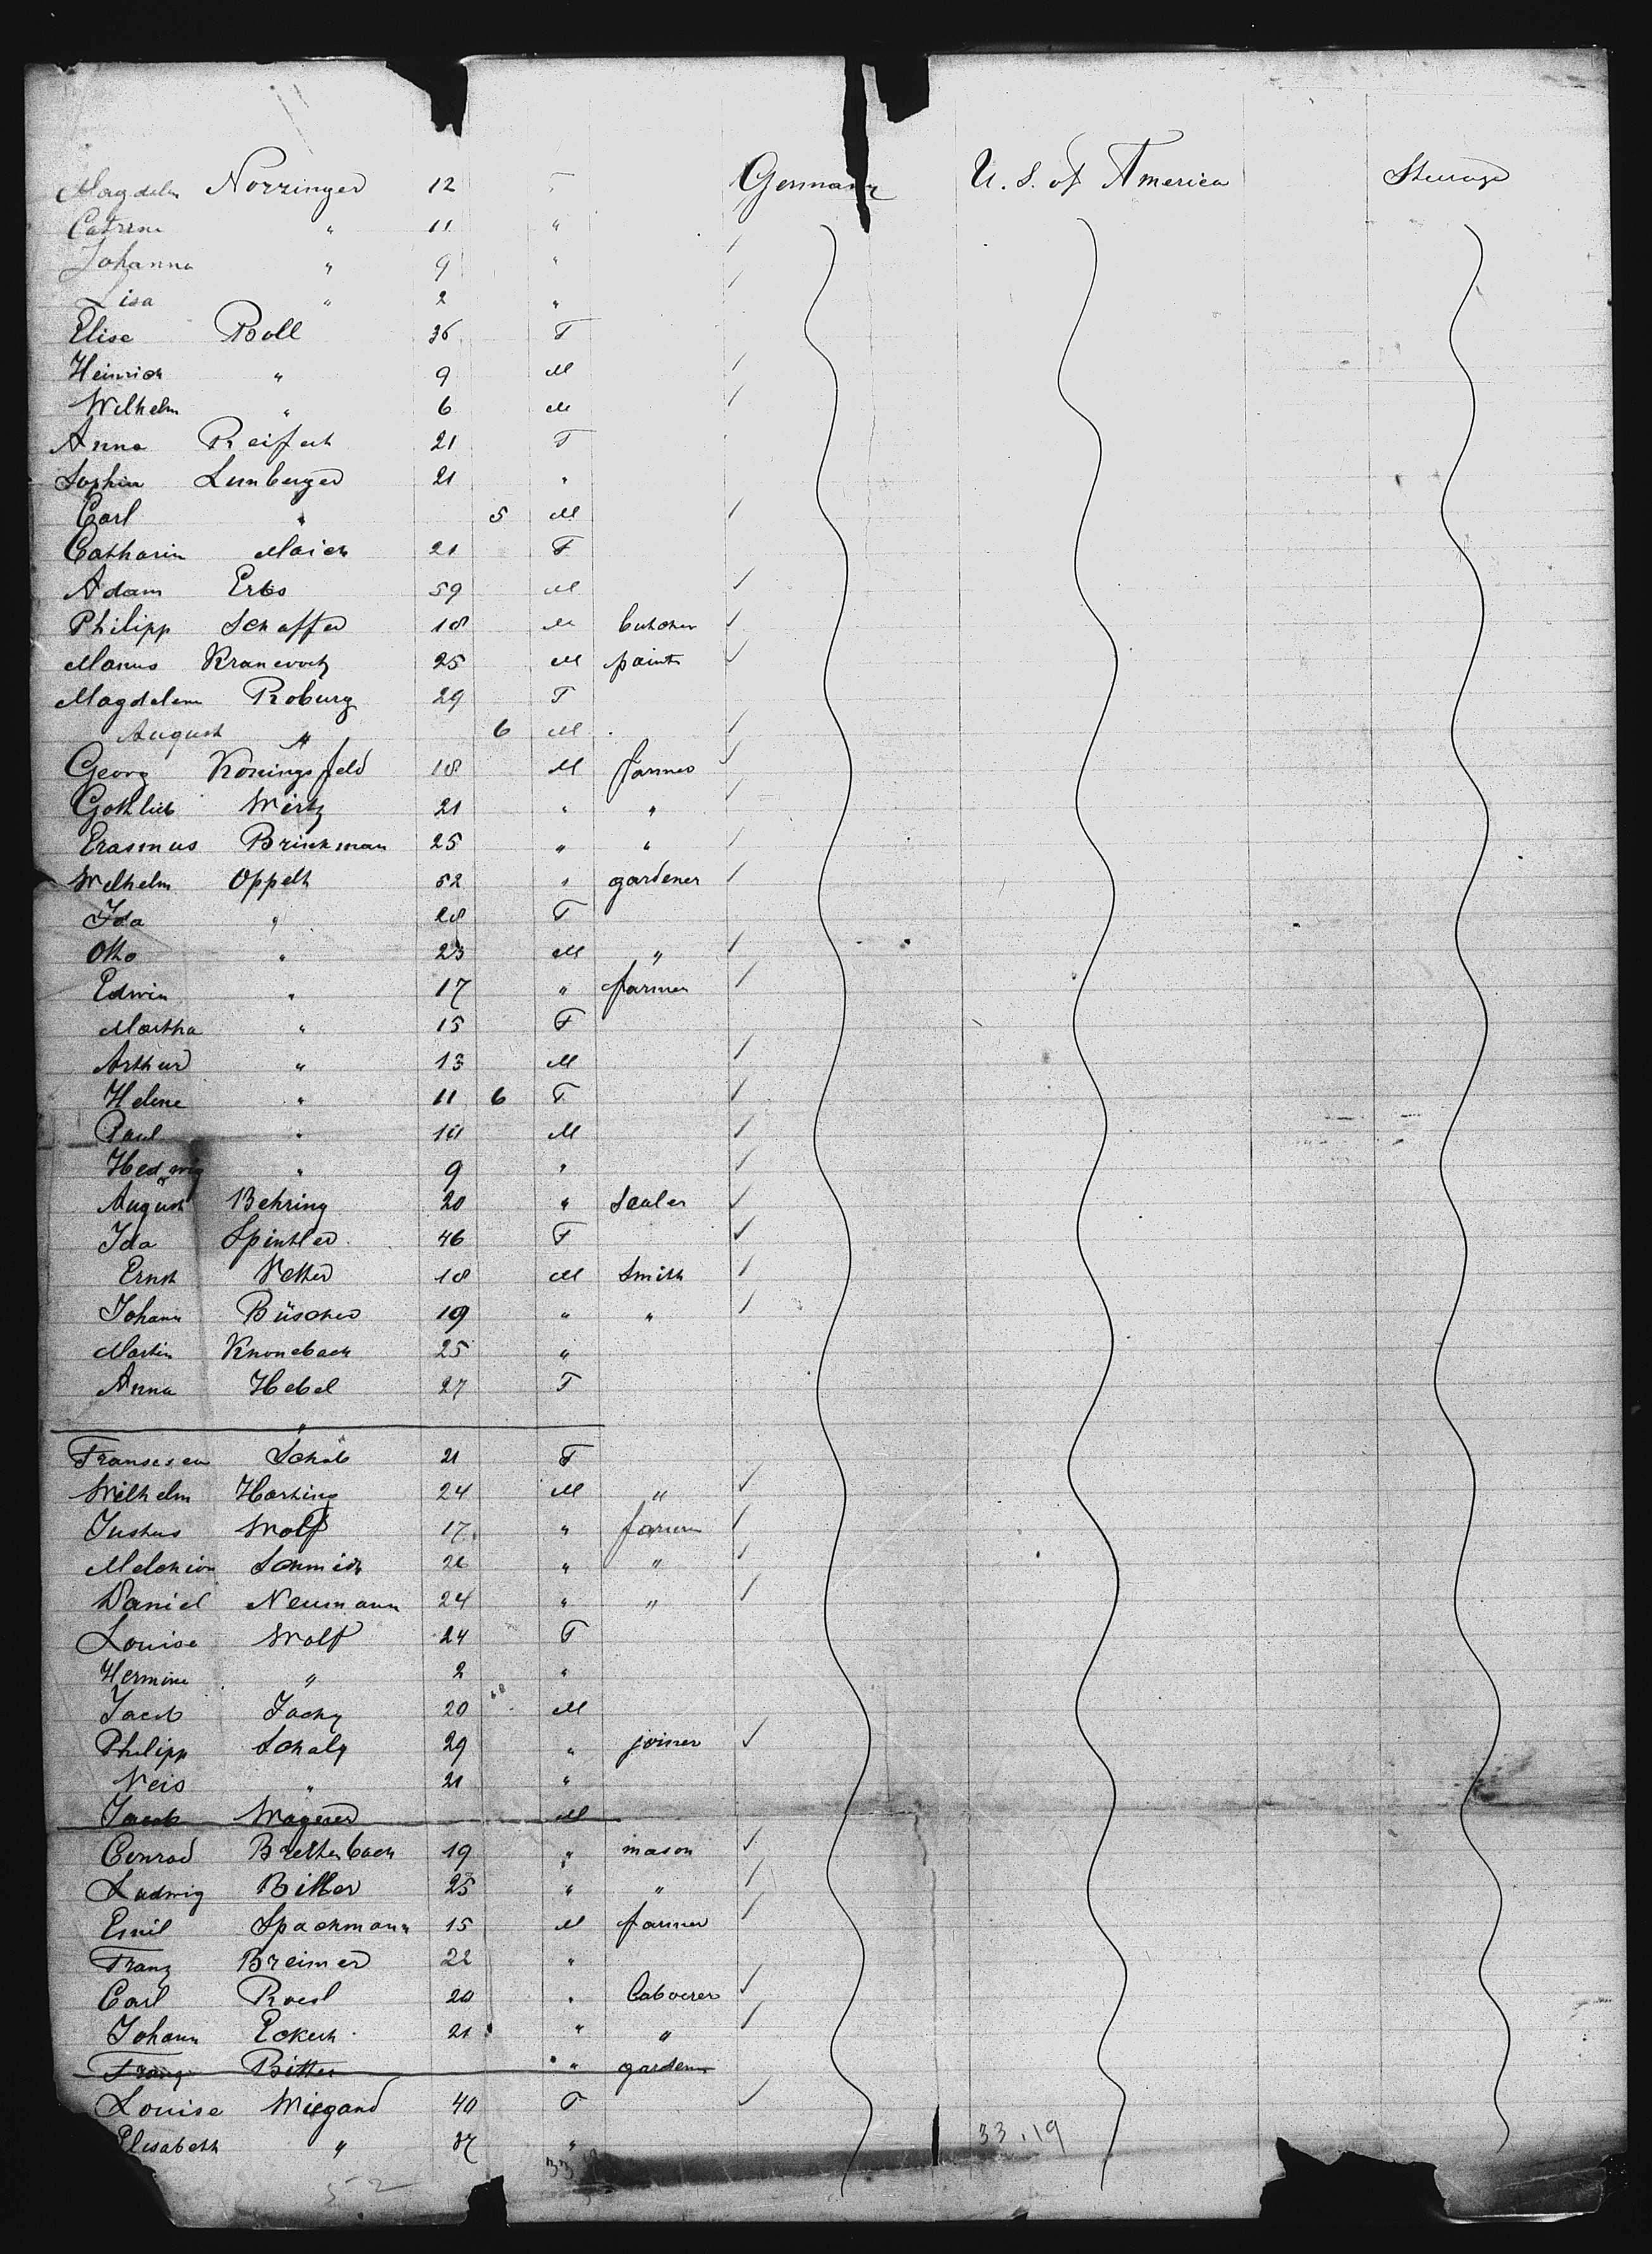 Magdeln Norringer 12 F Germany U. S. of America Steerage
Catrine " 11 "
Johanna " 9 "
Lisa " 2 "
Elise Boll 36 F
Heinrich " 9 M
Wilhelm " 6 M
Anna 21 F
Sophia Lemberger 21 "
Carl " 5 M
Catharin Maich 21 F
Adam Erbs 59 M
Philipp Schaffer 18 M butcher
25 M paint
Magdalena Roburg 29 F
August " 6 M
Georg Königsfeld 18 M farmer
Gottlieb Wirtz 21 " "
Erasmus Brinkman 25 " "
Wilhelm Oppelt 52 " gardener
Ida " 28 F
Otto " 23 M "
Edwin " 17 " farmer
Martha " 15 F
Arthur " 13 M
Helene " 11 6 F
Paul " M
Hedwig " 9 "
August Behring 20 "
Ida Spintler 46 F
Ernst Vetter 18 M Smith
Johann Büscher 19 " "
Martin Knonebach 25 "
Anna Hebel 27 F
"
Schab 21 F
Wilhelm Harting 24 M "
Justus Wolf 17 " farmer
Melchior Schmidt "  "
Daniel Neumann 24 " "
Louise Wolf 24 F
Hermine " 2 "
Jacob Jacky 20 M
Philipp Schaly 29 " joiner
Veis " 21 "
Jacob Wagner M
Conrad Bretherbach 19 " mason
Ludwig Bitter 25 " "
Emil Spachmann 15 M farmer
Franz Breimer 22 "
Carl Roesl 20 " labourer
Johann Eckert 21 " "
Franz Bitter " garden
Louise Wiegand 40 F
Elisabeth " 37 "
33.19
52